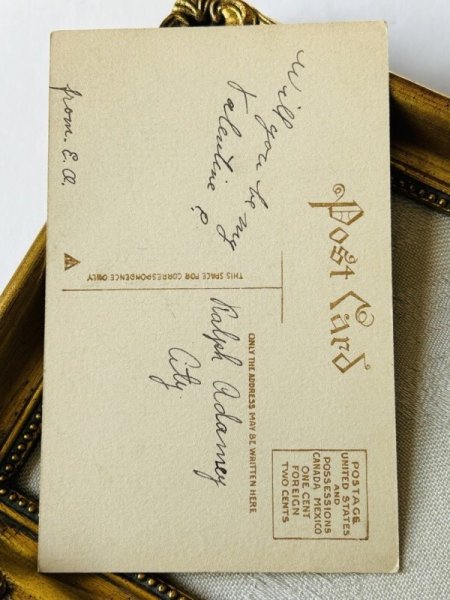 Post Card
Will you be my
Valentine ?
from. E. A.
THIS SPACE FOR CORRESPONDENCE ONLY
ONLY THE ADDRESS MAY BE WRITTEN HERE
Ralph Adamey
City
POSTAGE
UNITED STATES
AND
POSSESSIONS
CANADA MEXICO
ONE CENT
FOREIGN
TWO CENTS